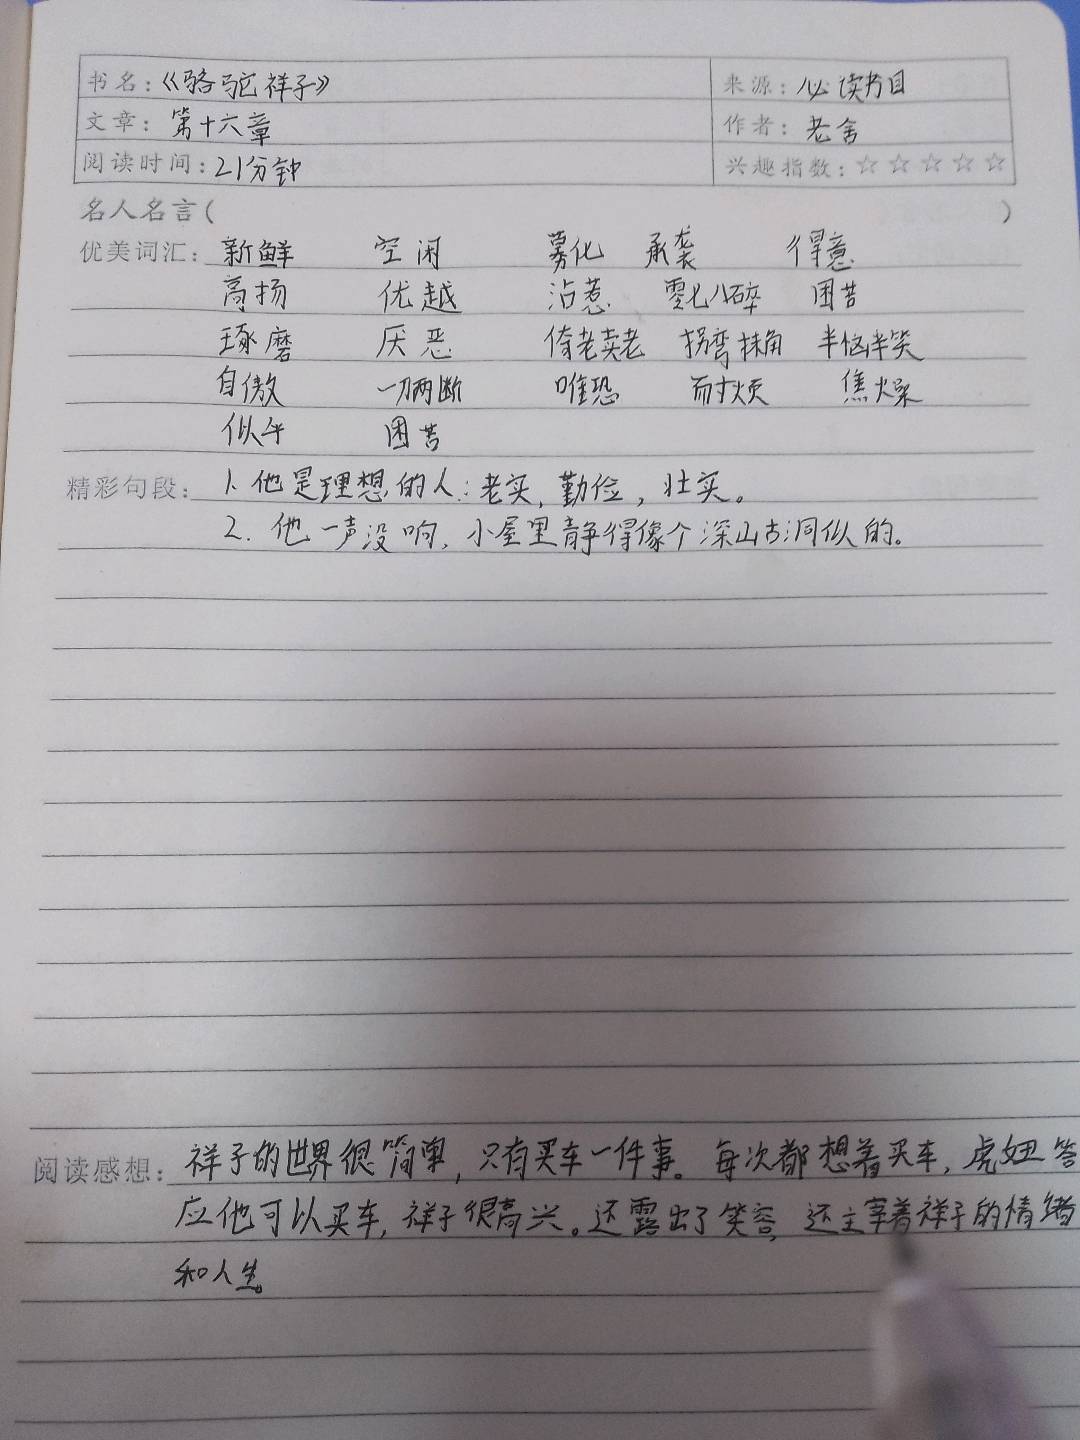 书名：《骆驼祥子》 来源：必读书目
文章：第十六章 作者：老舍
阅读时间：21分钟 兴趣指数：☆☆☆☆☆
名人名言（ ）
优美词汇：新鲜 空闲 雾化 承袭 得意
高扬 优越 沾惹 零七八碎 困苦
琢磨 厌恶 倚老卖老 拐弯抹角 半恼半笑
自傲 一刀两断 唯恐 耐烦 焦燥
似乎 困苦
精彩句段：1. 他是理想的人：老实，勤俭，壮实。
2. 他一声没响，小屋里静得像个深山古洞似的。
阅读感想：祥子的世界很简单，只有买车一件事。每次都想着买车，虎妞答
应他可以买车，祥子很高兴。还露出了笑容，还主宰着祥子的情绪
和人生。